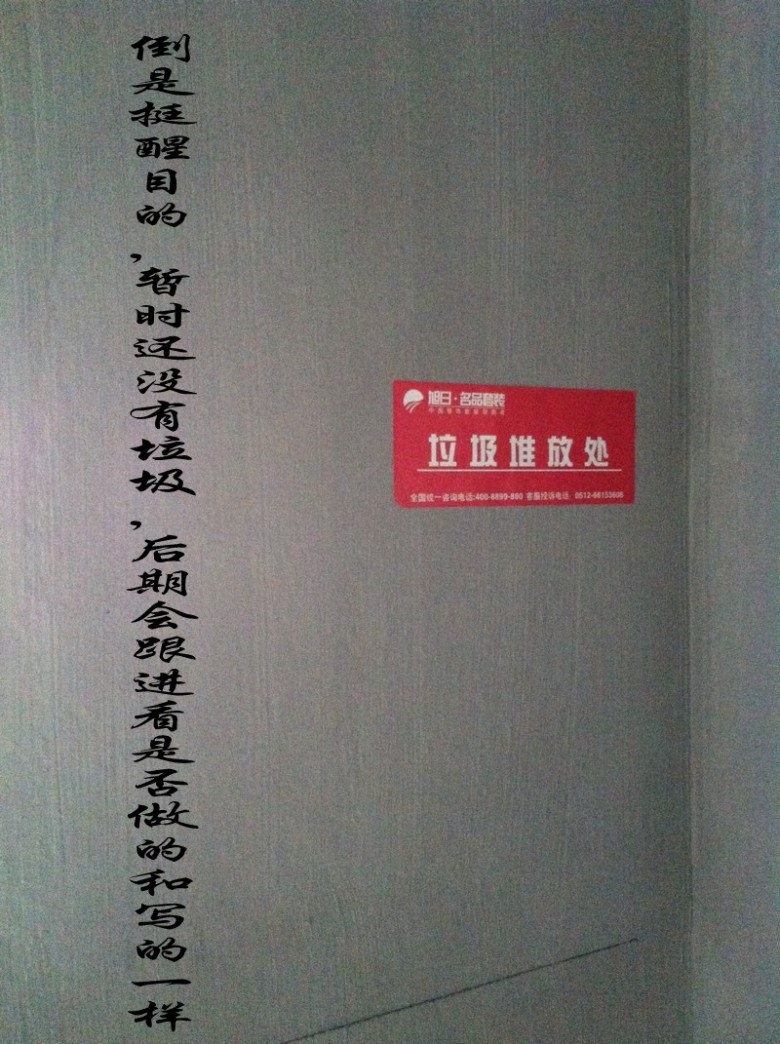 倒是挺醒目的,暂时还没有垃圾,后期会跟进看是否做的和写的一样
旭日·名品套装
垃圾堆放处
全国统一咨询电话:400-8899-880 客服投诉电话:0512-66153606